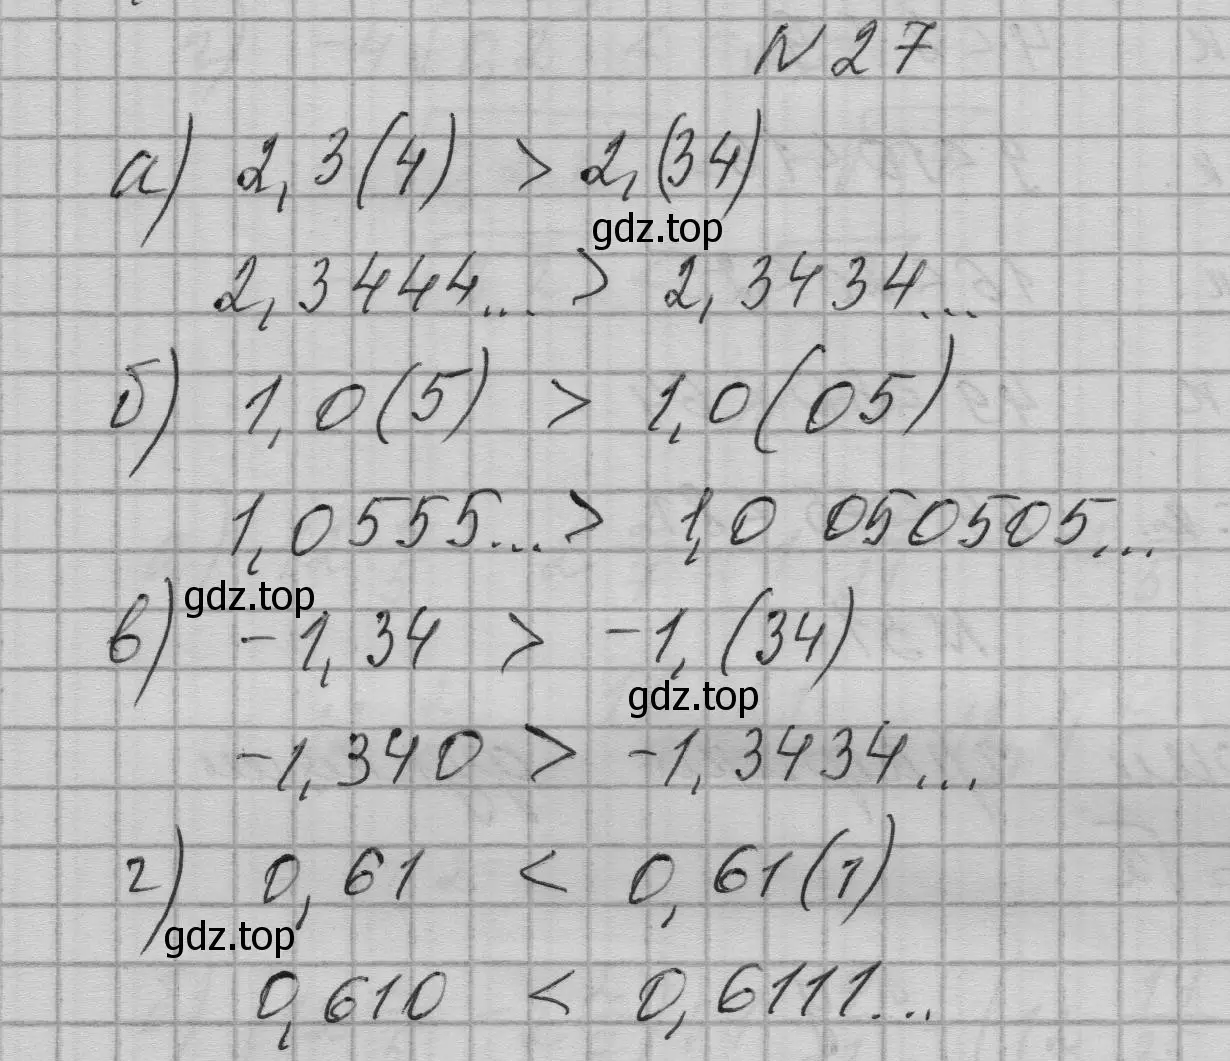 N 27
а) 2,3(4) > 2,(34)
gdz.top
2,3444... > 2,3434...
б) 1,0(5) > 1,0(05)
1,0555... > 1,0 050505...
gdz.top
в) -1,34 > -1,(34)
gdz.top
-1,340 > -1,3434...
г) 0,61 < 0,61(1)
gdz.top
0,610 < 0,6111...